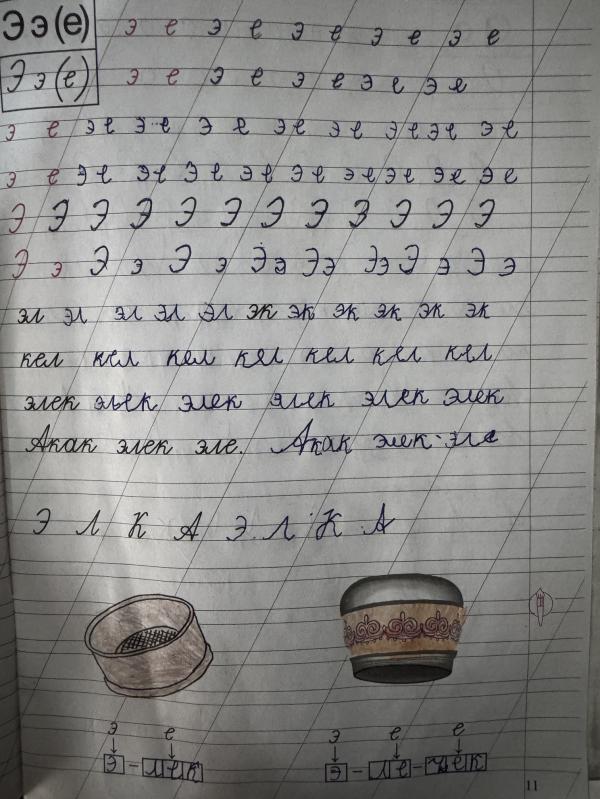 Ээ(е) э е э е э е э е э е
Ээ(е) э е э е э е э е э е
э е э е э е э е э е э е э е э е
э е э е э е э е э е э е э е э е э е
Э Э Э Э Э Э Э Э Э Э Э
Э э Э э Э э Ээ Ээ Ээ Э э Э э
эл эл эл эл эл эк эк эк эк эк эк
кел кел кел кел кел кел кел
элек элек элек элек элек элек
Акак элек эле. Акак элек эле
Э Л К А Э Л К А
э е э е е
э - лек э - ле - чек
11